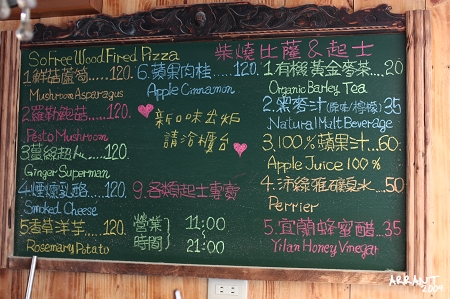 Sofree Wood Fired Pizza 柴燒比薩 & 起士
1.鮮菇蘆筍....120.
Mushroom Asparagus
2.羅勒鮑菇....120.
Pesto Mushroom
3.薑絲超人....120.
Ginger Superman
4.煙燻乳酪....120.
Smoked Cheese
5.香草洋芋....120.
Rosemary Potato
6.蘋果肉桂....120.
Apple Cinnamon
新口味出爐
請洽櫃台
9.各類起士專賣
營業時間 11:00
21:00
1.有機黃金麥茶...20
Organic Barley Tea
2.黑麥汁(原味/檸檬)35
Natural Malt Beverage
3.100%蘋果汁...60.
Apple Juice 100%
4.沛綠雅礦泉水...50.
Perrier
5.宜蘭蜂蜜醋...35
Yilan Honey Vinegar
ARRANT
2009